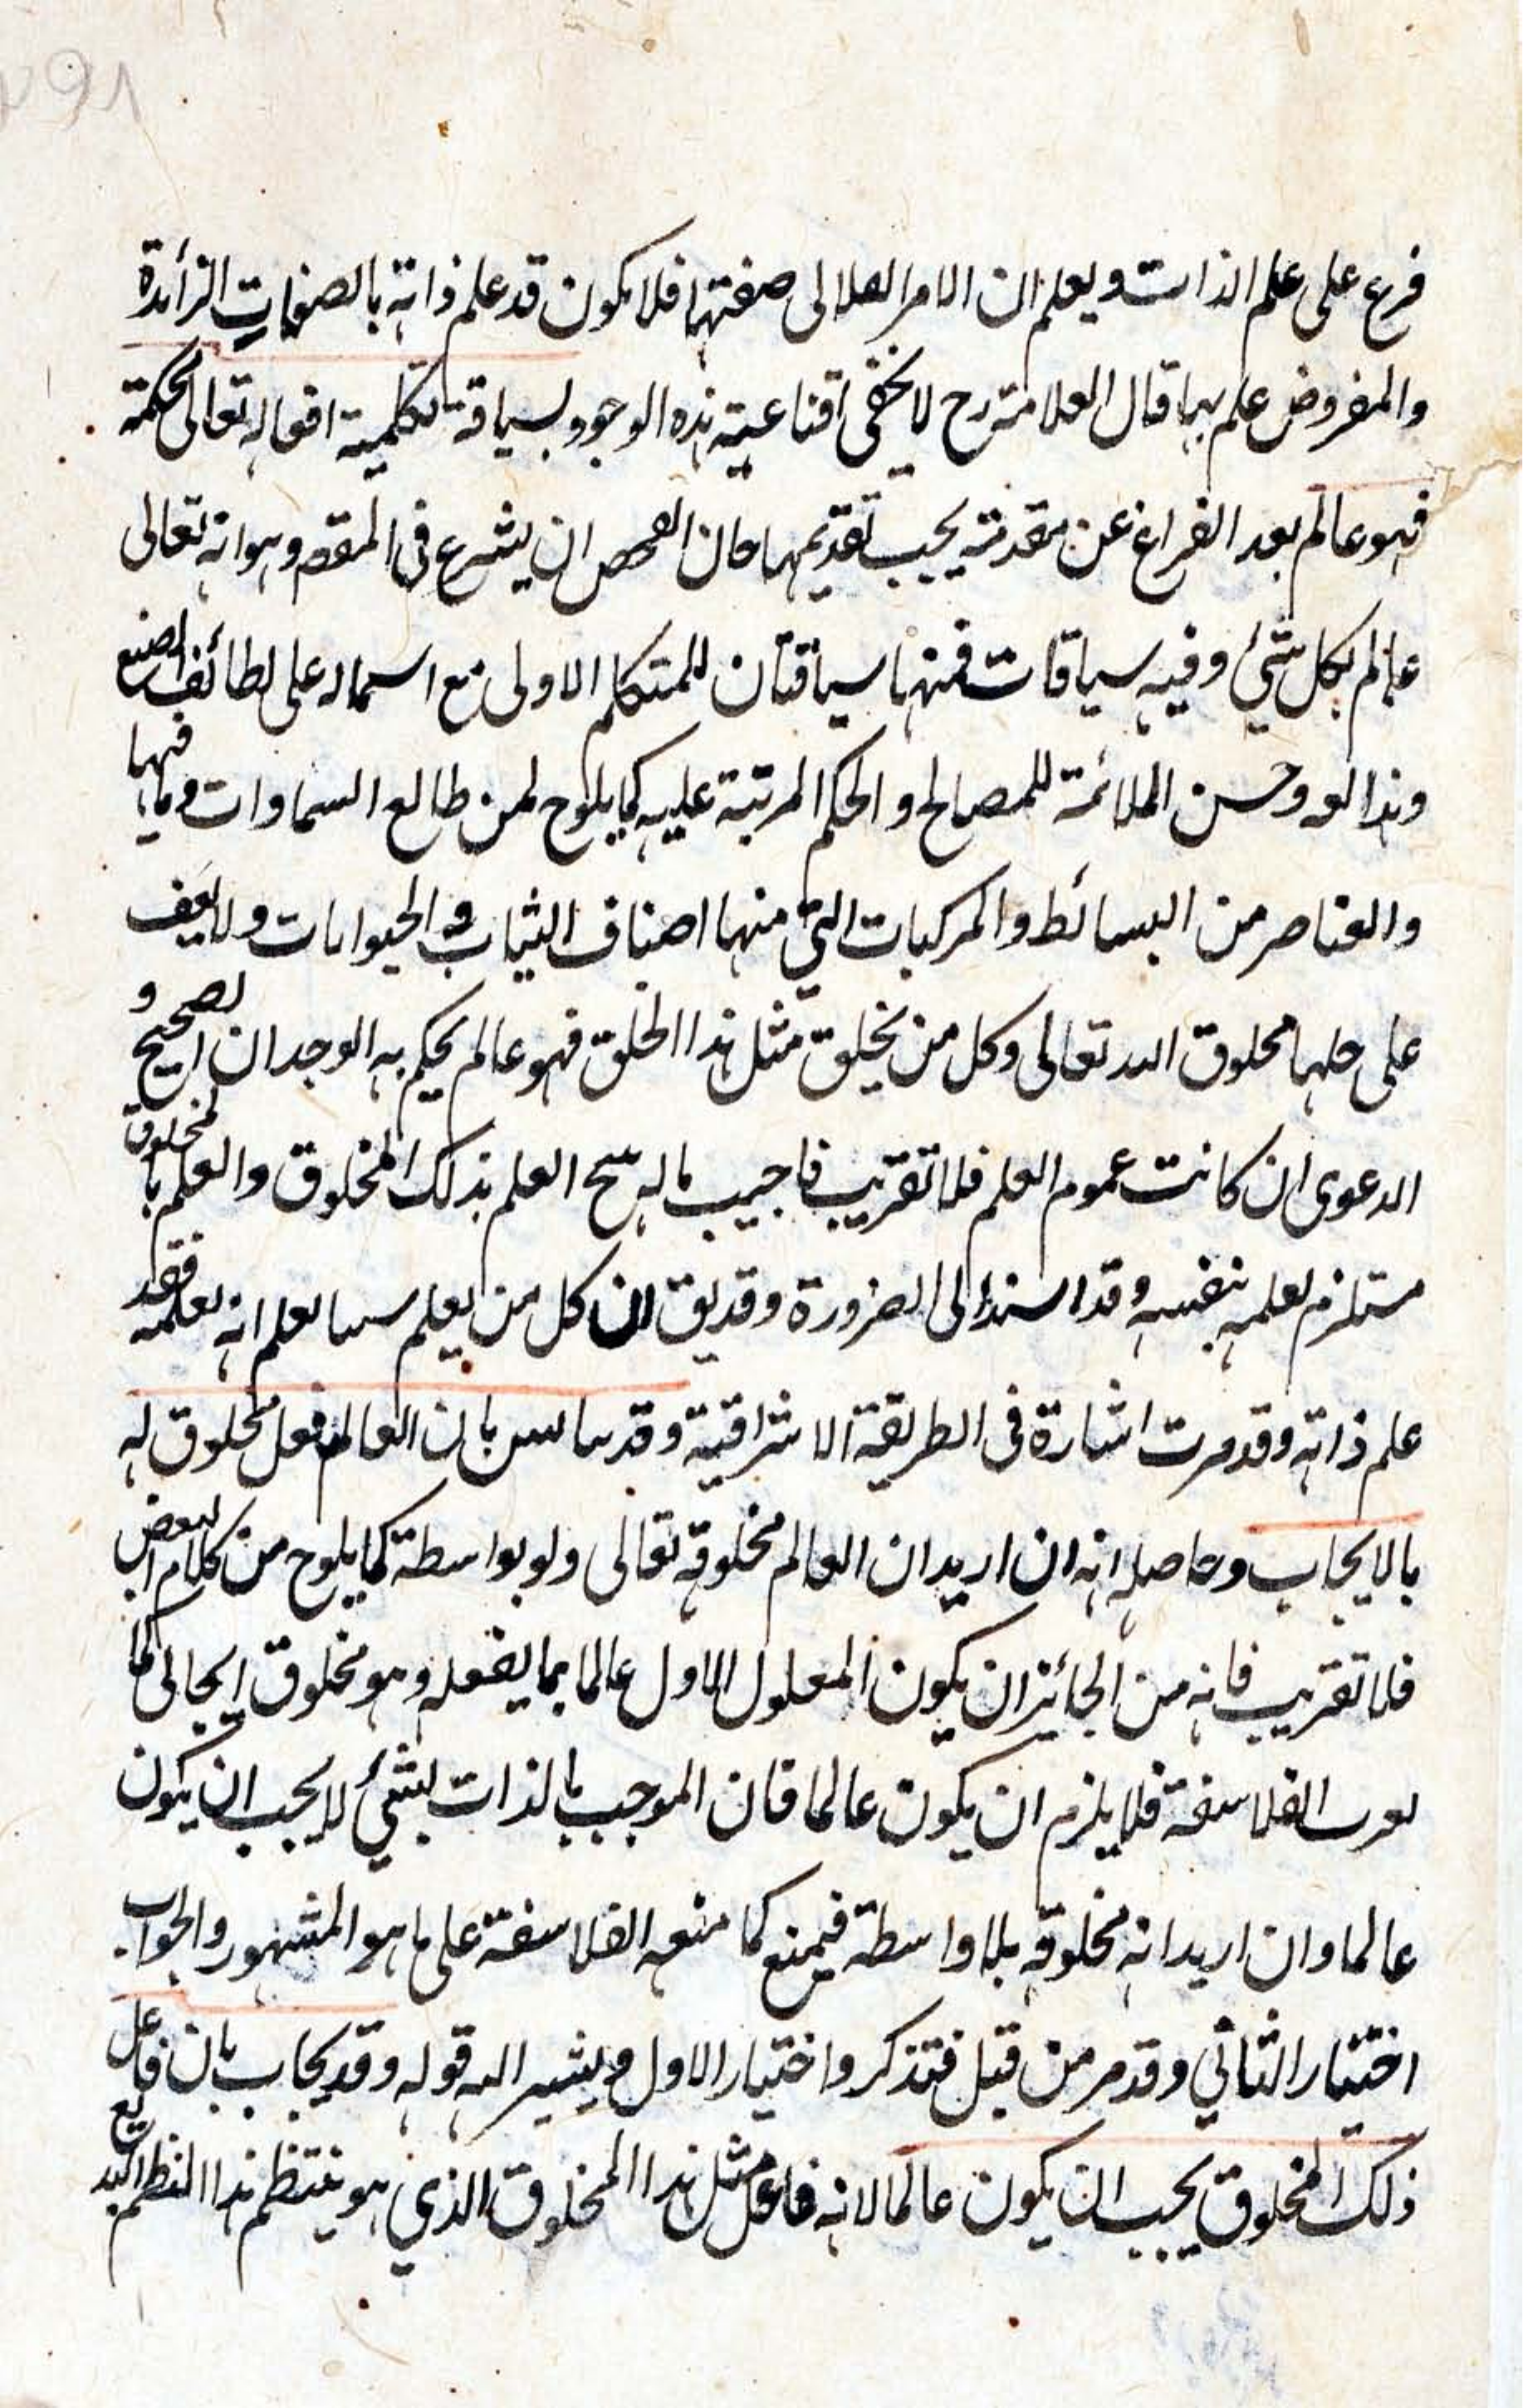 فرع على علم الذات ويعلم ان الامر الهلالى صفتها فلا يكون قد علم ذاته بالصفات الزائدة
والمفروض علم بها قال العلامة رح لا يخفى اقناعية هذه الوجوه ولسياقة تكلمية افعاله تعالى محكمة
فهو عالم بعد الفراغ عن مقدمة يجب تقديمها حان ان يشرع في المقصم وهو انه تعالى
عالم بكل شيء وفيه سياقات فمنها سياقتان للمتكلم الاولى مع اسماله على لطائف الصنع
وبدائعه وحسن الملائمة للمصالح والحكم المرتبة عليه كما يلوح لمن طالع السماوات وما فيها
والعناصر من البسائط والمركبات التي منها اصناف النبات والحيوانات ولا يقف
على مخلوق الله تعالى وكل من يخلق مثل هذا الخلق فهو عالم يحكم به الوجدان الصحيح و
الدعوى ان كانت عموم العلم فلا تقريب فاجيب بانه العلم بذلك المخلوق والعلم بالمخلوق
مستلزم لعلمه بنفسه وقد اسند الى الضرورة وقد يق ان كل من يعلم يعلم انه يعلمه فقد
علم ذاته وقد مرت اشارة في الطريقة الاشراقية وقد بان العالم فعل مخلوق له
بالايجاب وحاصله انه ان اريد ان العالم مخلوقه تعالى ولو بواسطة كما يلوح من كلام البعض
فلا تقريب فانه من الجائز ان يكون المعلول الاول عالما بما يفعله وهو مخلوق ايجابي كما
الفلاسفة فلا يلزم ان يكون عالما فان الموجب بالذات بشيء لا يجب ان يكون
عالما وان اريد انه مخلوقه بلا واسطة فيمنع كما منعه الفلاسفة على ما هو المشهور والجواب
اختيار الثاني وقد مر من قبل فتذكر واختيار الاول ويشير اليه قوله وقد يجاب بان فاعل
ذلك المخلوق يجب ان يكون عالما لانه فاعل مثل هذا المخلوق الذي هو ينتظم هذا النظم البديع